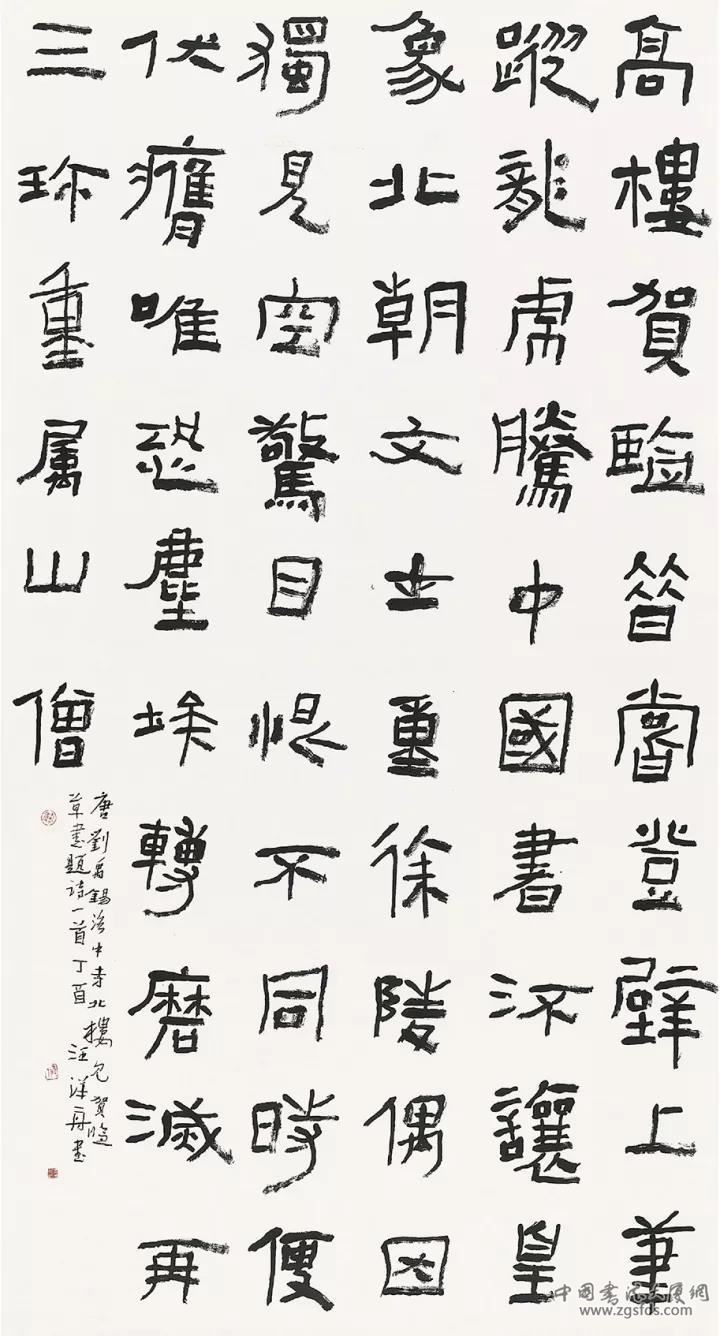 高樓賀監昔曾登壁上筆
蹤龍虎騰中國書流讓皇
象北朝文士重徐陵偶因
獨見空驚目恨不同時便
伏膺唯恐塵埃轉磨滅再
三珍重属山僧
唐劉禹錫洛中寺北樓見賀監
草書題詩一首 丁酉 汪洋舟書
中国书法大厦網
www.zgsfds.com